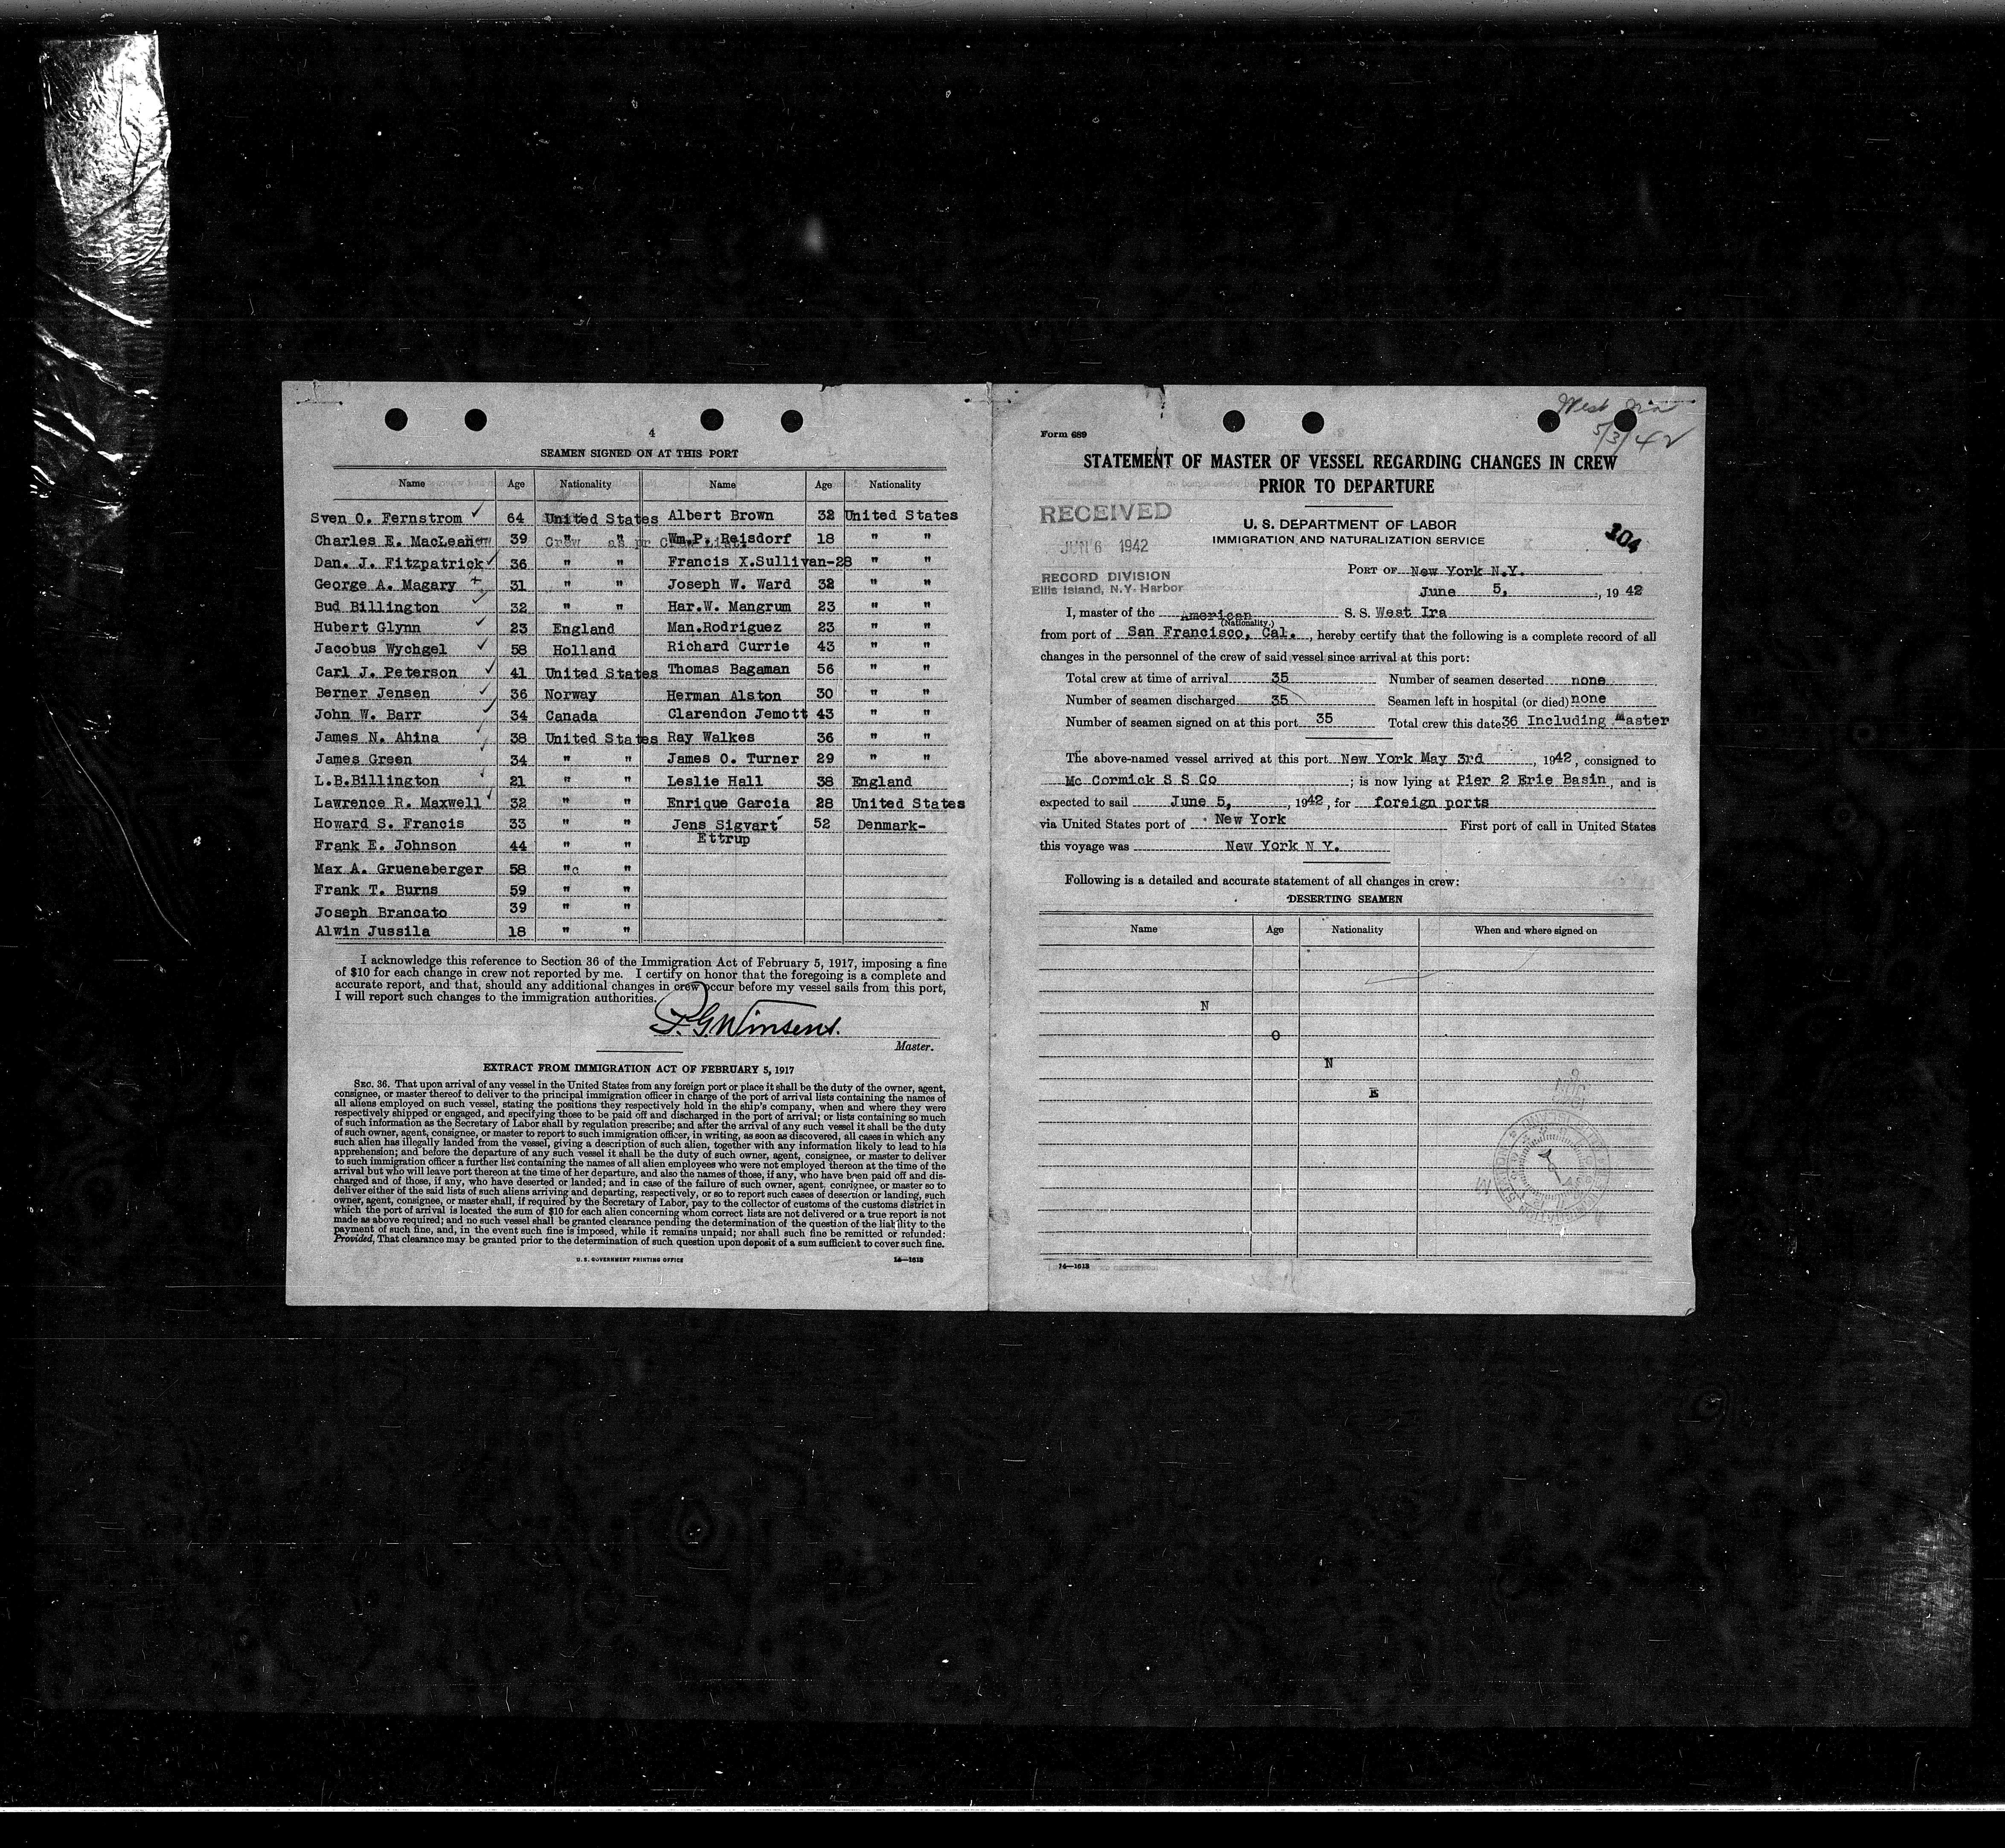 4
SEAMEN SIGNED ON AT THIS PORT
Name Age Nationality Name Age Nationality
Sven O. Fernstrom 64 United States Albert Brown 32 United States
Charles E. MacLean 39 " " Wm.P. Reisdorf 18 " "
Dan. J. Fitzpatrick 36 " " Francis X.Sullivan-28 " "
George A. Magary 31 " " Joseph W. Ward 32 " "
Bud Billington 32 " " Har.W. Mangrum 23 " "
Hubert Glynn 23 England Man.Rodriguez 23 " "
Jacobus Wychgel 58 Holland Richard Currie 43 " "
Carl J. Peterson 41 United States Thomas Bagaman 56 " "
Berner Jensen 36 Norway Herman Alston 30 " "
John W. Barr 34 Canada Clarendon Jemott 43 " "
James N. Ahina 38 United States Ray Walkes 36 " "
James Green 34 " " James O. Turner 29 " "
L.B.Billington 21 " " Leslie Hall 38 England
Lawrence R. Maxwell 32 " " Enrique Garcia 28 United States
Howard S. Francis 33 " " Jens Sigvart 52 Denmark-
Ettrup
Frank E. Johnson 44 " "
Max A. Grueneberger 58 " "
Frank T. Burns 59 " "
Joseph Brancato 39 " "
Alwin Jussila 18 " "
I acknowledge this reference to Section 36 of the Immigration Act of February 5, 1917, imposing a fine
of $10 for each change in crew not reported by me. I certify on honor that the foregoing is a complete and
accurate report, and that, should any additional changes in crew occur before my vessel sails from this port,
I will report such changes to the immigration authorities.
Master.
EXTRACT FROM IMMIGRATION ACT OF FEBRUARY 5, 1917
SEC. 36. That upon arrival of any vessel in the United States from any foreign port or place it shall be the duty of the owner, agent,
consignee, or master thereof to deliver to the principal immigration officer in charge of the port of arrival lists containing the names of
all aliens employed on such vessel, stating the positions they respectively hold in the ship's company, when and where they were
respectively shipped or engaged, and specifying those to be paid off and discharged in the port of arrival; or lists containing so much
of such information as the Secretary of Labor shall by regulation prescribe; and after the arrival of any such vessel it shall be the duty
of such owner, agent, consignee, or master to report to such immigration officer, in writing, as soon as discovered, all cases in which any
such alien has illegally landed from the vessel, giving a description of such alien, together with any information likely to lead to his
apprehension; and before the departure of any such vessel it shall be the duty of such owner, agent, consignee, or master to deliver
to such immigration officer a further list containing the names of all alien employees who were not employed thereon at the time of the
arrival but who will leave port thereon at the time of her departure, and also the names of those, if any, who have been paid off and dis-
charged and of those, if any, who have deserted or landed; and in case of the failure of such owner, agent, consignee, or master so to
deliver either of the said lists of such aliens arriving and departing, respectively, or so to report such cases of desertion or landing, such
owner, agent, consignee, or master shall, if required by the Secretary of Labor, pay to the collector of customs of the customs district in
which the port of arrival is located the sum of $10 for each alien concerning whom correct lists are not delivered or a true report is not
made as above required; and no such vessel shall be granted clearance pending the determination of the question of the liability to the
payment of such fine, and, in the event such fine is imposed, while it remains unpaid; nor shall such fine be remitted or refunded:
Provided, That clearance may be granted prior to the determination of such question upon deposit of a sum sufficient to cover such fine.
U. S. GOVERNMENT PRINTING OFFICE 14—1613
West Ira
5/3/42
Form 689
STATEMENT OF MASTER OF VESSEL REGARDING CHANGES IN CREW
PRIOR TO DEPARTURE
RECEIVED
JUN 6 1942
RECORD DIVISION
Ellis Island, N.Y. Harbor
U. S. DEPARTMENT OF LABOR
IMMIGRATION AND NATURALIZATION SERVICE
104
PORT OF New York N.Y.
June 5, , 1942
I, master of the American S. S. West Ira
(Nationality.)
from port of San Francisco, Cal. , hereby certify that the following is a complete record of all
changes in the personnel of the crew of said vessel since arrival at this port:
Total crew at time of arrival 35 Number of seamen deserted none
Number of seamen discharged 35 Seamen left in hospital (or died) none
Number of seamen signed on at this port 35 Total crew this date 36 Including Master
The above-named vessel arrived at this port New York May 3rd , 1942, consigned to
Mc Cormick S S Co ; is now lying at Pier 2 Erie Basin , and is
expected to sail June 5, , 1942, for foreign ports
via United States port of New York First port of call in United States
this voyage was New York N Y.
Following is a detailed and accurate statement of all changes in crew:
DESERTING SEAMEN
Name Age Nationality When and where signed on
N
O
N
E
14—1613